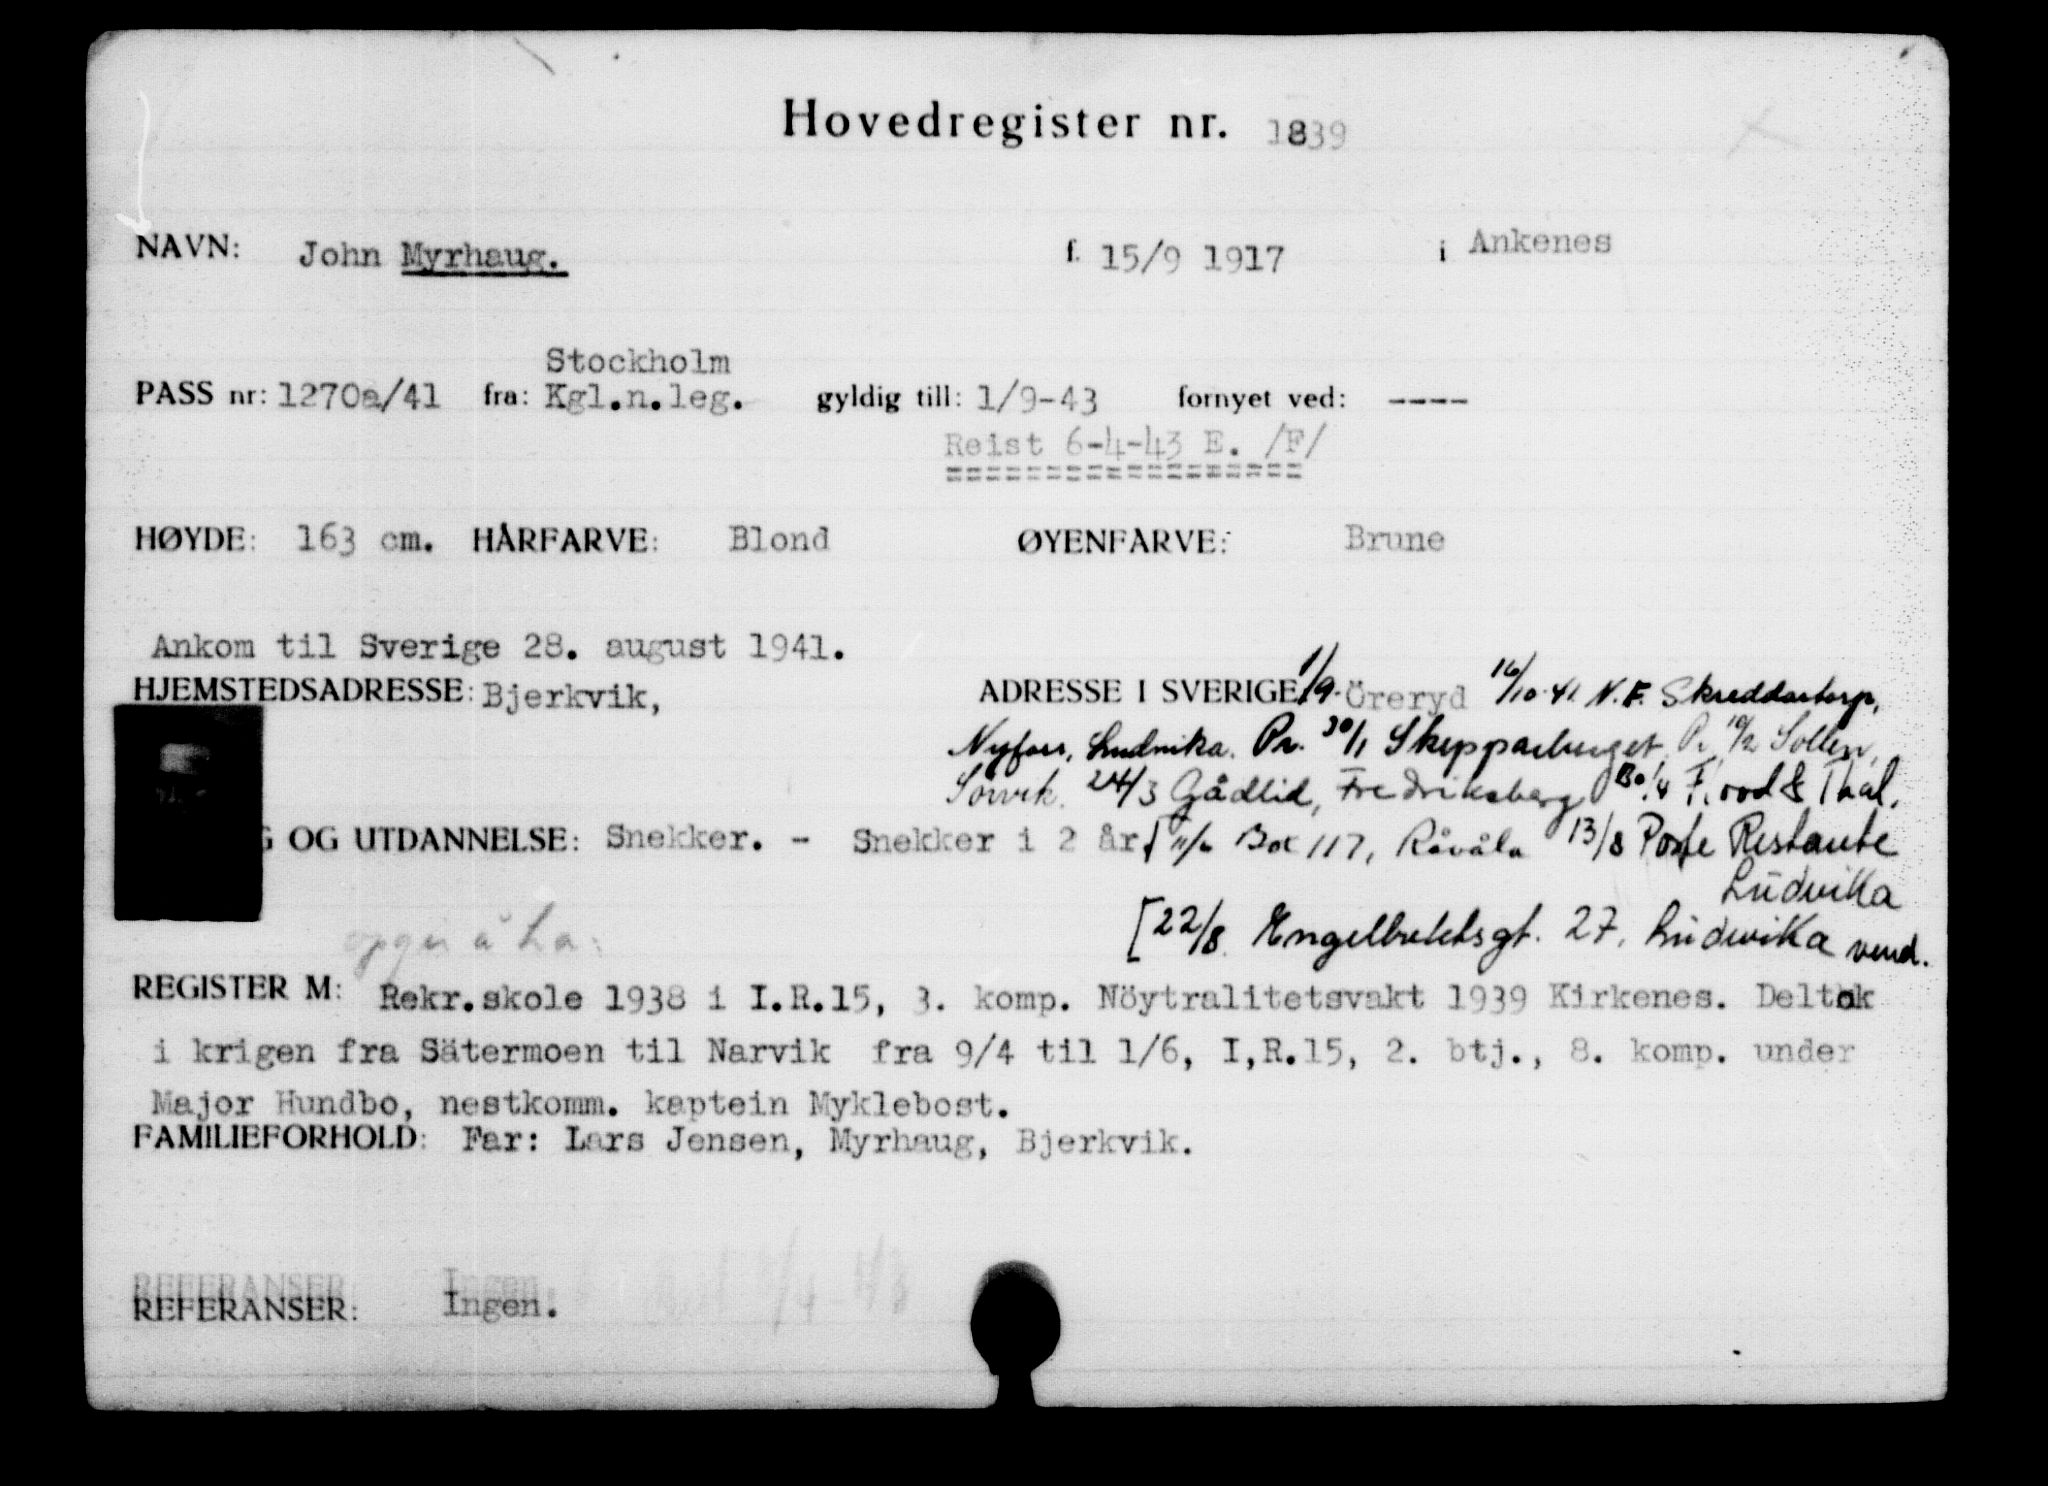 Hovedregister nr. 1839
NAVN: John Myrhaug. f. 15/9 1917 i Ankenes
Stockholm
PASS nr: 1270a/41 fra: Kgl.n.leg. gyldig till: 1/9-43 fornyet ved: ----
Reist 6-4-43 E. /F/
==================
HØYDE: 163 cm. HÅRFARVE: Blond ØYENFARVE: Brune
Ankom til Sverige 28. august 1941.
HJEMSTEDSADRESSE: Bjerkvik, ADRESSE I SVERIGE: 1/9- Öreryd 16/10-41 N.F. Skreddartorp,
Nyfors, Ludvika. Pr. 30/1 Skypparberget Pr. 10/2 Sollen,
Sörvik. 24/3 Gådlid, Fredriksberg
G OG UTDANNELSE: Snekker. - Snekker i 2 år 11/6 Box 117, Råvåla 13/8 Poste Restante
Ludvika
[22/8. Engelbrektsgt. 27, Ludvika vend.
REGISTER M: Rekr.skole 1938 i I.R.15, 3. komp. Nöytralitetsvakt 1939 Kirkenes. Deltok
i krigen fra Sätermoen til Narvik fra 9/4 til 1/6, I,R.15, 2. btj., 8. komp. under
Major Hundbo, nestkomm. kaptein Myklebost.
FAMILIEFORHOLD: Far: Lars Jensen, Myrhaug, Bjerkvik.
REFERANSER: Ingen.
REFERANSER: Ingen.